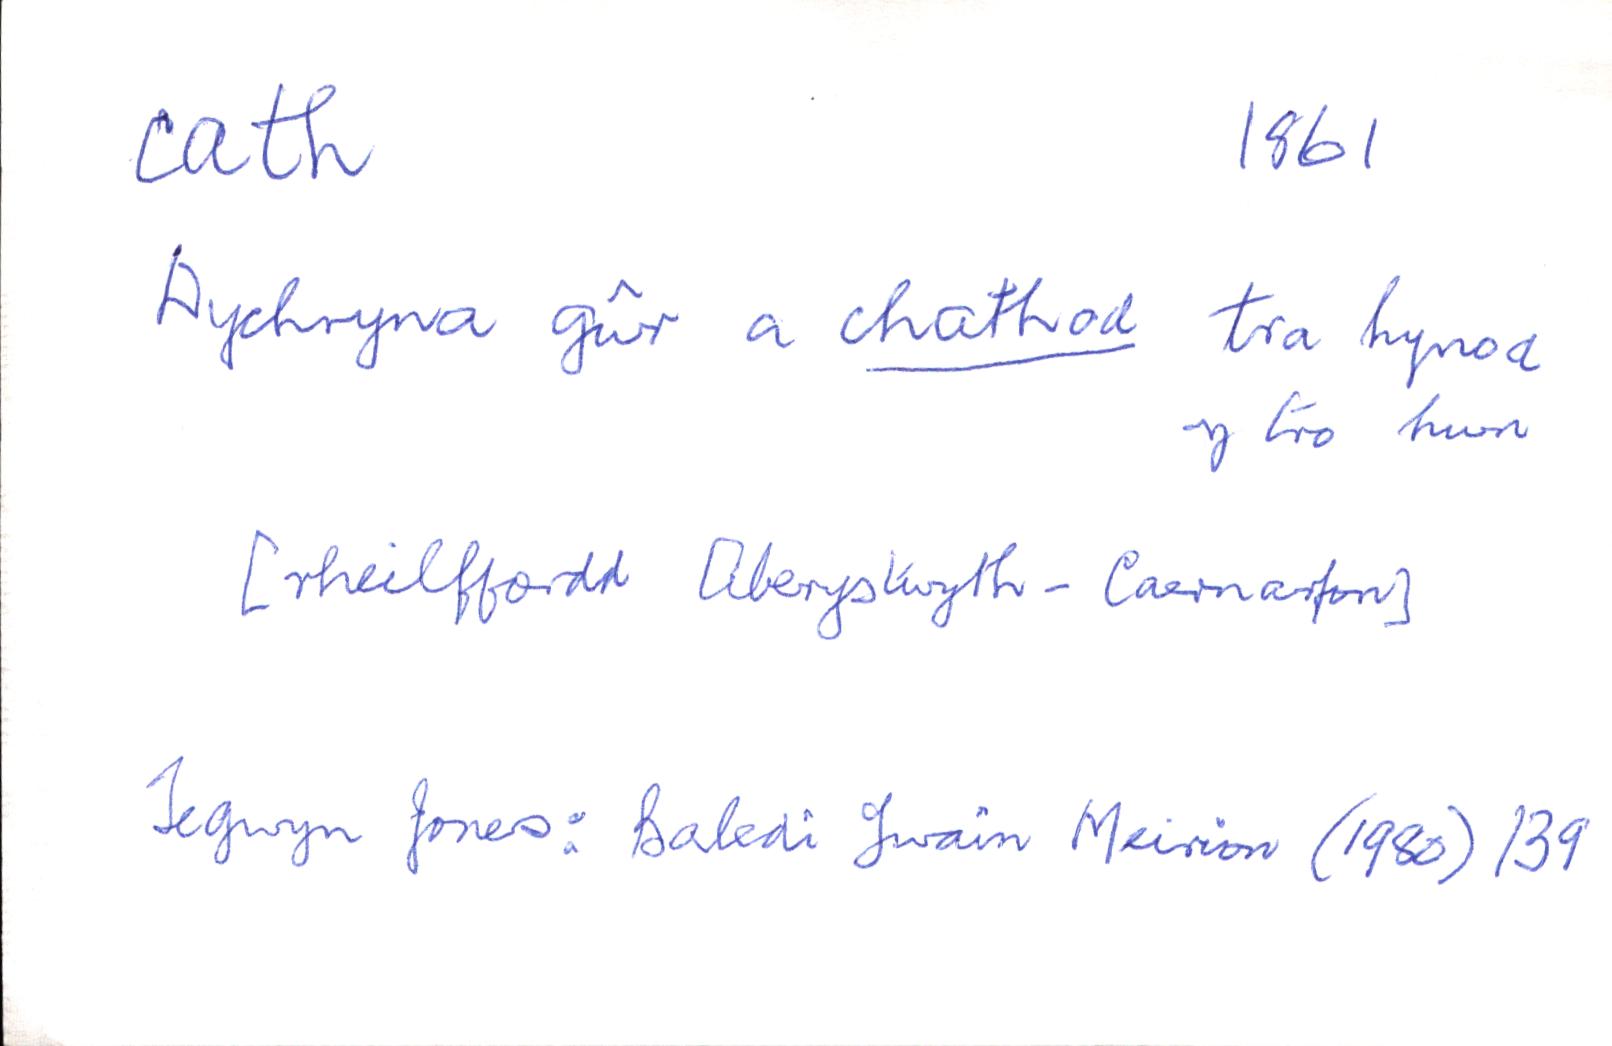 cath 1861
Dychryna gŵr a chathod tra hynod
y tro hwn
[rheilffordd Aberystwyth - Caernarfon]
Tegwyn Jones: Baledi Ywain Meirion (1980) 139